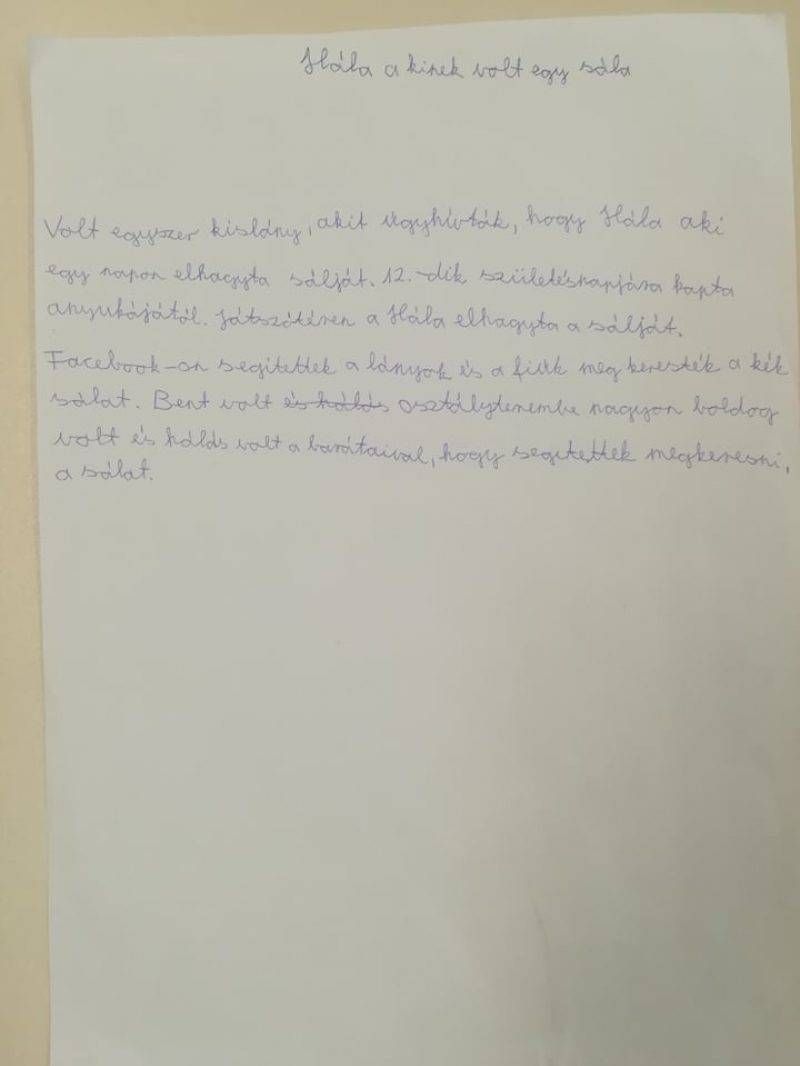 Hála a kinek volt egy sála
Volt egyszer kislány, akit úgyhívták, hogy Hála aki
egy napon elhagyta sálját. 12.-dik születésnapjára kapta
anyukájától. Játszótéren a Hála elhagyta a sálját.
Facebook-on segítettek a lányok és a fiúk meg keresték a kék
sálat. Bent volt és hálás osztályterembe nagyon boldog
volt és hálás volt a barátaival, hogy segítettek megkeresni,
a sálat.